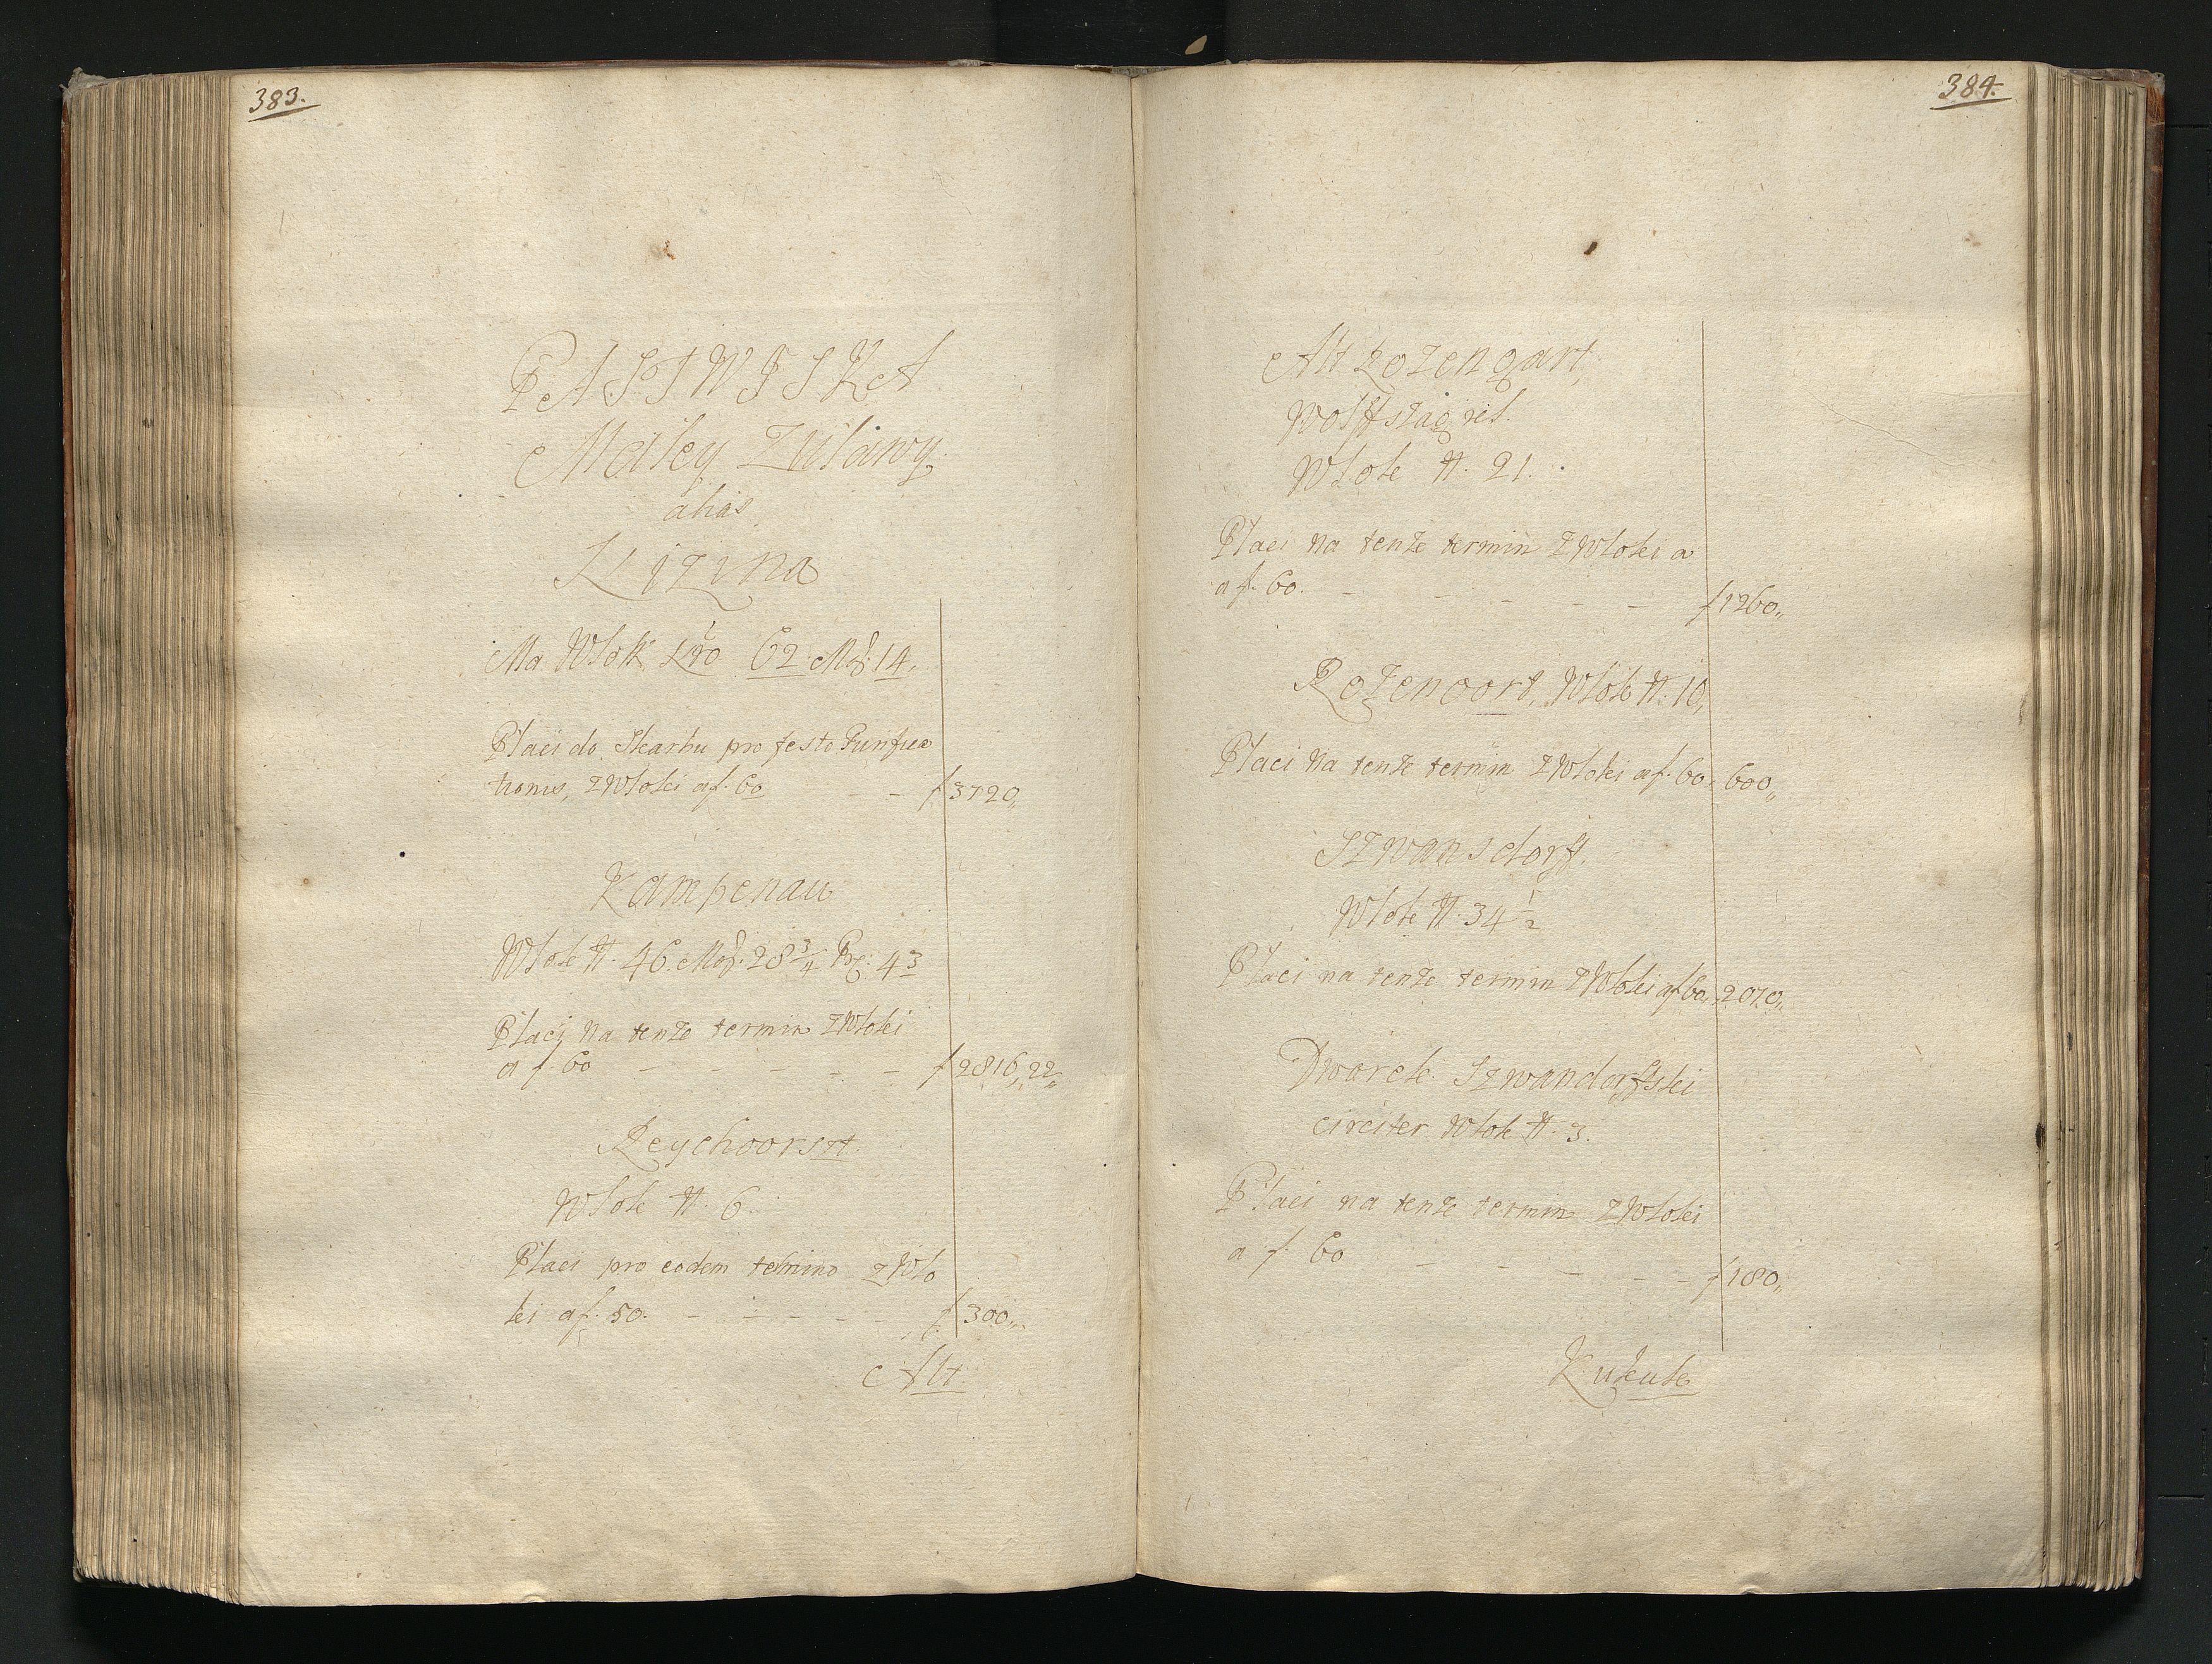 383.
PASTWISKA
Małey Zuławy
alias
Ma Włok 62 Mor: 14.
Płaci do Skarbu pro festo Purifica
tionis, z Włoki a f. 60 - - f 3720,,
Kampenau
Włok N. 46. Mor. 28 3/4 Prę: 43
Płaci na tenże termin z Włoki
a f. 60 - - - - - f 2816,, 22,,
Reychoorst
Włok N. 6.
Płaci pro eodem termino z Wło
ki a f. 50. - - - - - f 300,,
Alt
384.
Alt Rozengart,
Włok N. 21.
Płaci na tenże termin z Włoki a
a f. 60. - - - - - f 1260,,
Rozenoort, Włok N. 10,
Płaci na tenże termin z Włoki a f. 60, 600,,
Szwansdorff.
Włok N. 34 1/2
Płaci na tenże termin z Włoki a f 60, 2070,,
Dworek Szwandorffski
circiter Włok N. 3.
Płaci na tenże termin z Włoki
a f. 60 - - - - - f 180,,